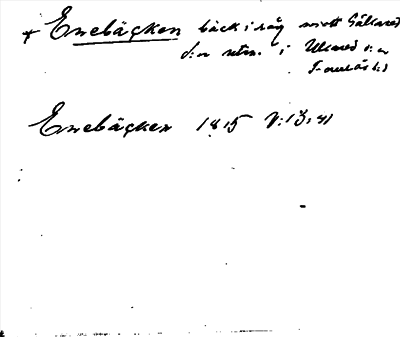 + Enebäcken bäck i råg mott Gällared
s:n utm. i Ullared s:n
Enebäcken 1815 V:13:41